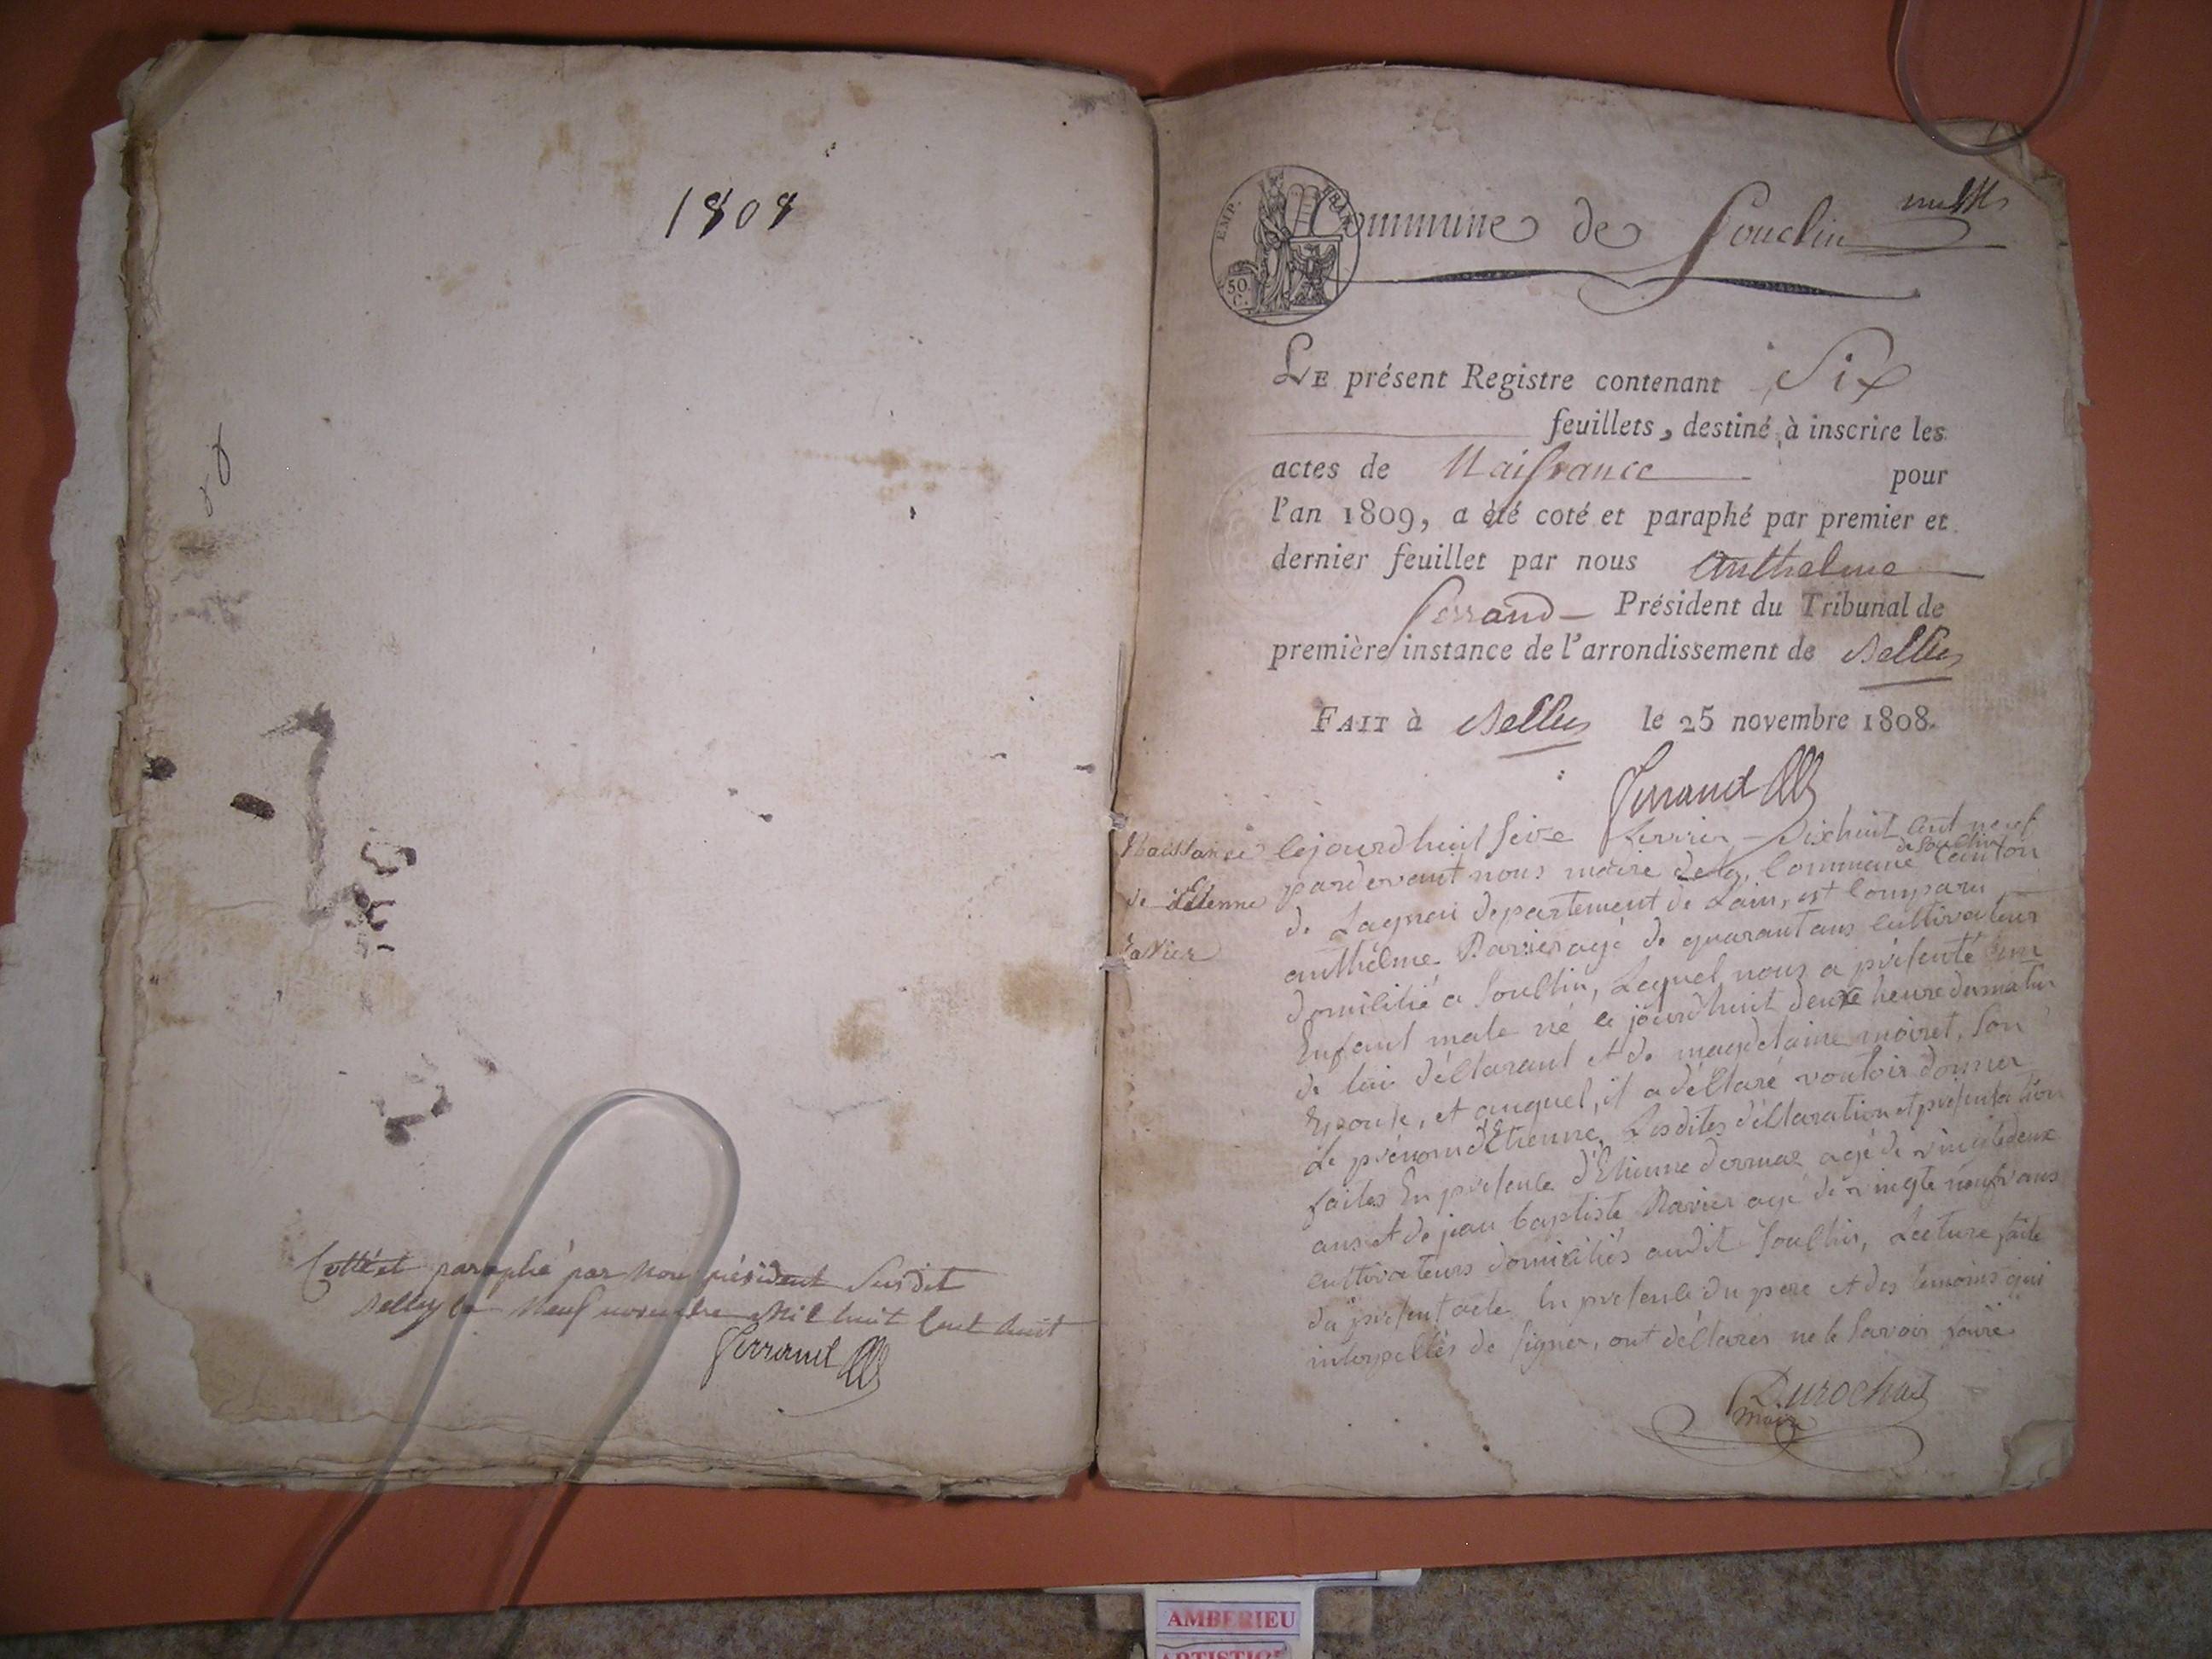 1808
Cotté et paraphé par Nous président Susdit
Belley le Neuf novembre Mil huit Cent huit
Ferrand
EMP. FRAN
50.
C.
Commune de Souclin
LE présent Registre contenant Six
feuillets, destiné à inscrire les
actes de Naissance pour
l'an 1809, a été coté et paraphé par premier et
dernier feuillet par nous Anthelme
Ferrand Président du Tribunal de
première instance de l'arrondissement de Belley
FAIT à Belley le 25 novembre 1808.
Ferrand
Naissance
de d'Etienne
Ravier
Cejourdhuit seize fevrier dixhuit Cent neuf
pardevant nous maire de la Commune de Souclin Canton
de Lagnieu departement de Lain, est Comparu
anthelme Ravier agé de quarant ans cultivateur
domicilié a Souclin, Lequel nous a présenté un
Enfant male né ce jourdhuit deuxe heure du matin
de lui déclarant et de magdelaine moiret, son
Epouse, et auquel, il a déclaré vouloir donner
Le prénom d'Etienne, Lesdites déclaration et présentation
faites En présence d'Etienne dermaz agé de vincte deux
ans et de jean baptiste Ravier agé de vingte neuf ans
cultivateurs domiciliés audit Souclin, Lecture faite
du présent acte En présence du pere et des témoins qui
interpellés de signer, ont déclarés ne le Savoir faire
Durochat
maire
AMBERIEU
ARTISTIQ